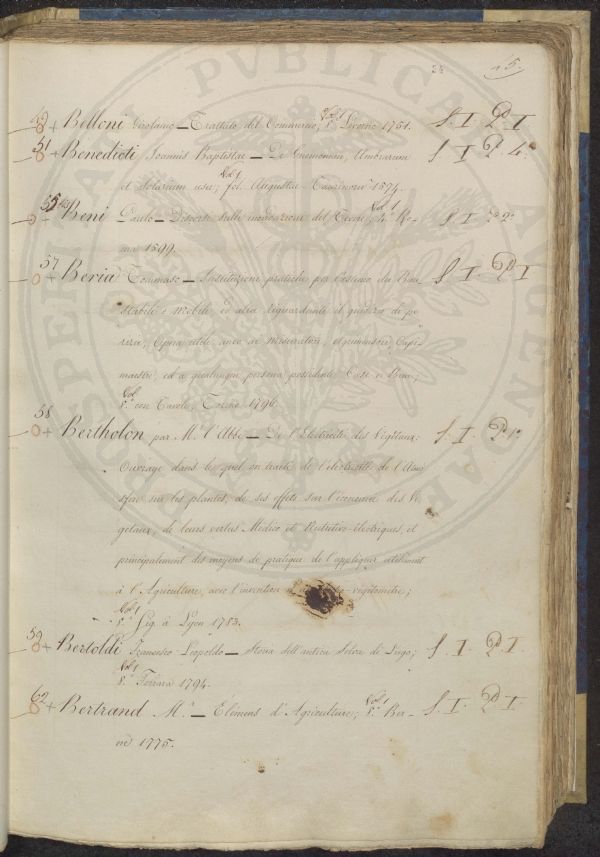 34 15.
49 + Belloni Girolamo — Trattato del Commercio, Vol. 1 8.° Livorno 1751. S. I. P. I
51 + Benedicti Joannis Baptistae — De Gnomonum, Umbrarum S. I P. 4.
et Solarium usu; Vol. 1 fol. Augustae Taurinorum 1574.
55 + Beni Paulo — Discorsi sulle inondazioni del Tevere, Vol. 1 4.° Ro- S I P. 2.
ma 1599.
57 Beria Tommaso — Instituzioni pratiche per l'estimo dei Beni S. I P. I
stabili e mobili, ed altre riguardanti il giudizio di pe-
rizie, Opera utile anco ai Misuratori, Agrimensori, Capi-
maestri, ed a qualunque persona possidente Case e Beni;
Vol.
8.° con Tavole, Torino 1794.
58 + Bertholon par M.r l'Abbé — De l'Electricité des Végétaux: S. I. P. 1.
Ouvrage dans le quel on traite de l'electricité de l'Atmo
sfere sur les plantes, de ses effets sur l'économie des Ve
getaux, de leurs vertus Medico et Nutritivo-électriques, et
principalement des moyens de pratique de l'appliquer utilement
à l'Agriculture, avec l'invention -vegetometre;
Vol. 1
8.° Fig. à Lyon 1783.
59 + Bertoldi Francesco Leopoldo — Storia dell'antica Selva di Lugo; S. I. P. I.
Vol. 1
8.° Ferrara 1794.
62 + Bertrand M.r — Élémens d'Agriculture; Vol. 1 8.° Ber- S. I. P. I
ne 1775.
PROSPERITATI PUBLICAE AUGENDAE